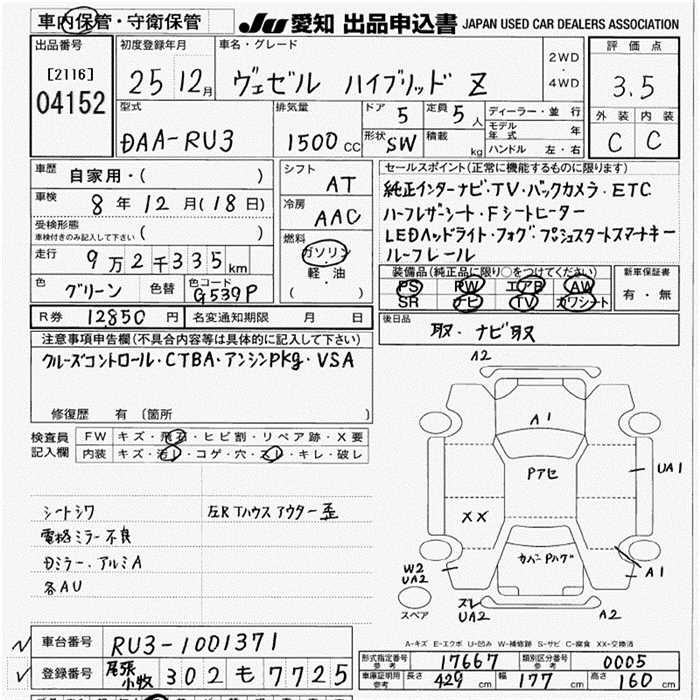 車内保管・守衛保管
JU 愛知 出品申込書 JAPAN USED CAR DEALERS ASSOCIATION
出品番号
[2116]
04152
初度登録年月
25 12月
車名・グレード
ヴェゼル ハイブリッド Z
2WD
・
4WD
評価点
3.5
外装 内装
C C
型式
DAA-RU3
排気量
1500 CC
ドア 5
定員 5人
形状 SW
積載 kg
ディーラー・並行
モデル年式 年
ハンドル 左・右
車歴
自家用・( )
車検
8年 12月(18日)
受検形態
車検付きのみ記入して下さい ( )
走行
9万2千335km
色 グリーン 色替 色コード G539P
シフト
AT
冷房
AAC
燃料
ガソリン
・
軽・油
( )
セールスポイント(正常に機能するものに限ります)
純正インターナビ・TV・バックカメラ・ETC
ハーフレザーシート・Fシートヒーター
LEDヘッドライト・フォグ・プッシュスタートスマートキー
ルーフレール
装備品(純正品に限り○をつけてください)
PS PW エアB AW
SR ナビ TV カワシート
新車保証書
有・無
R券 12850円 名変通知期限 月 日
後日品
取・ナビ取
注意事項申告欄(不具合内容等は具体的に記入して下さい)
クルーズコントロール・CTBA・アンシンPkg・VSA
修復歴 有 (箇所 )
検査員
記入欄
FW キズ・飛石・ヒビ割・リペア跡・X要
内装 キズ・汚レ・コゲ・穴・スレ・キレ・破レ
シートシワ
電格ミラー不良
Dミラー・アルミA
各AU
左RTハウスアウター歪
A2
A1
Pアセ
UA1
XX
カバーPハグ
W2
UA2
A1
スペア
スレ
UA2
A2
A-キズ E-エクボ U-凹み W-補修跡 S-サビ C-腐食 XX-交換済
車台番号 RU3-1001371
登録番号 尾張小牧 302 も 7725
形式指定番号 参考 17667 類別区分番号 参考 0005
車庫証明用 参考 長さ 429 cm 幅 177 cm 高さ 160 cm